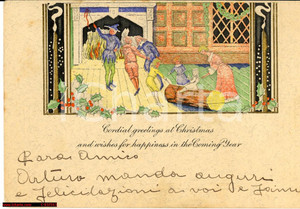 Cordial greetings at Christmas
and wishes for happiness in the Coming Year
Caro Amico
Arturo manda auguri
e felicitazioni a voi e